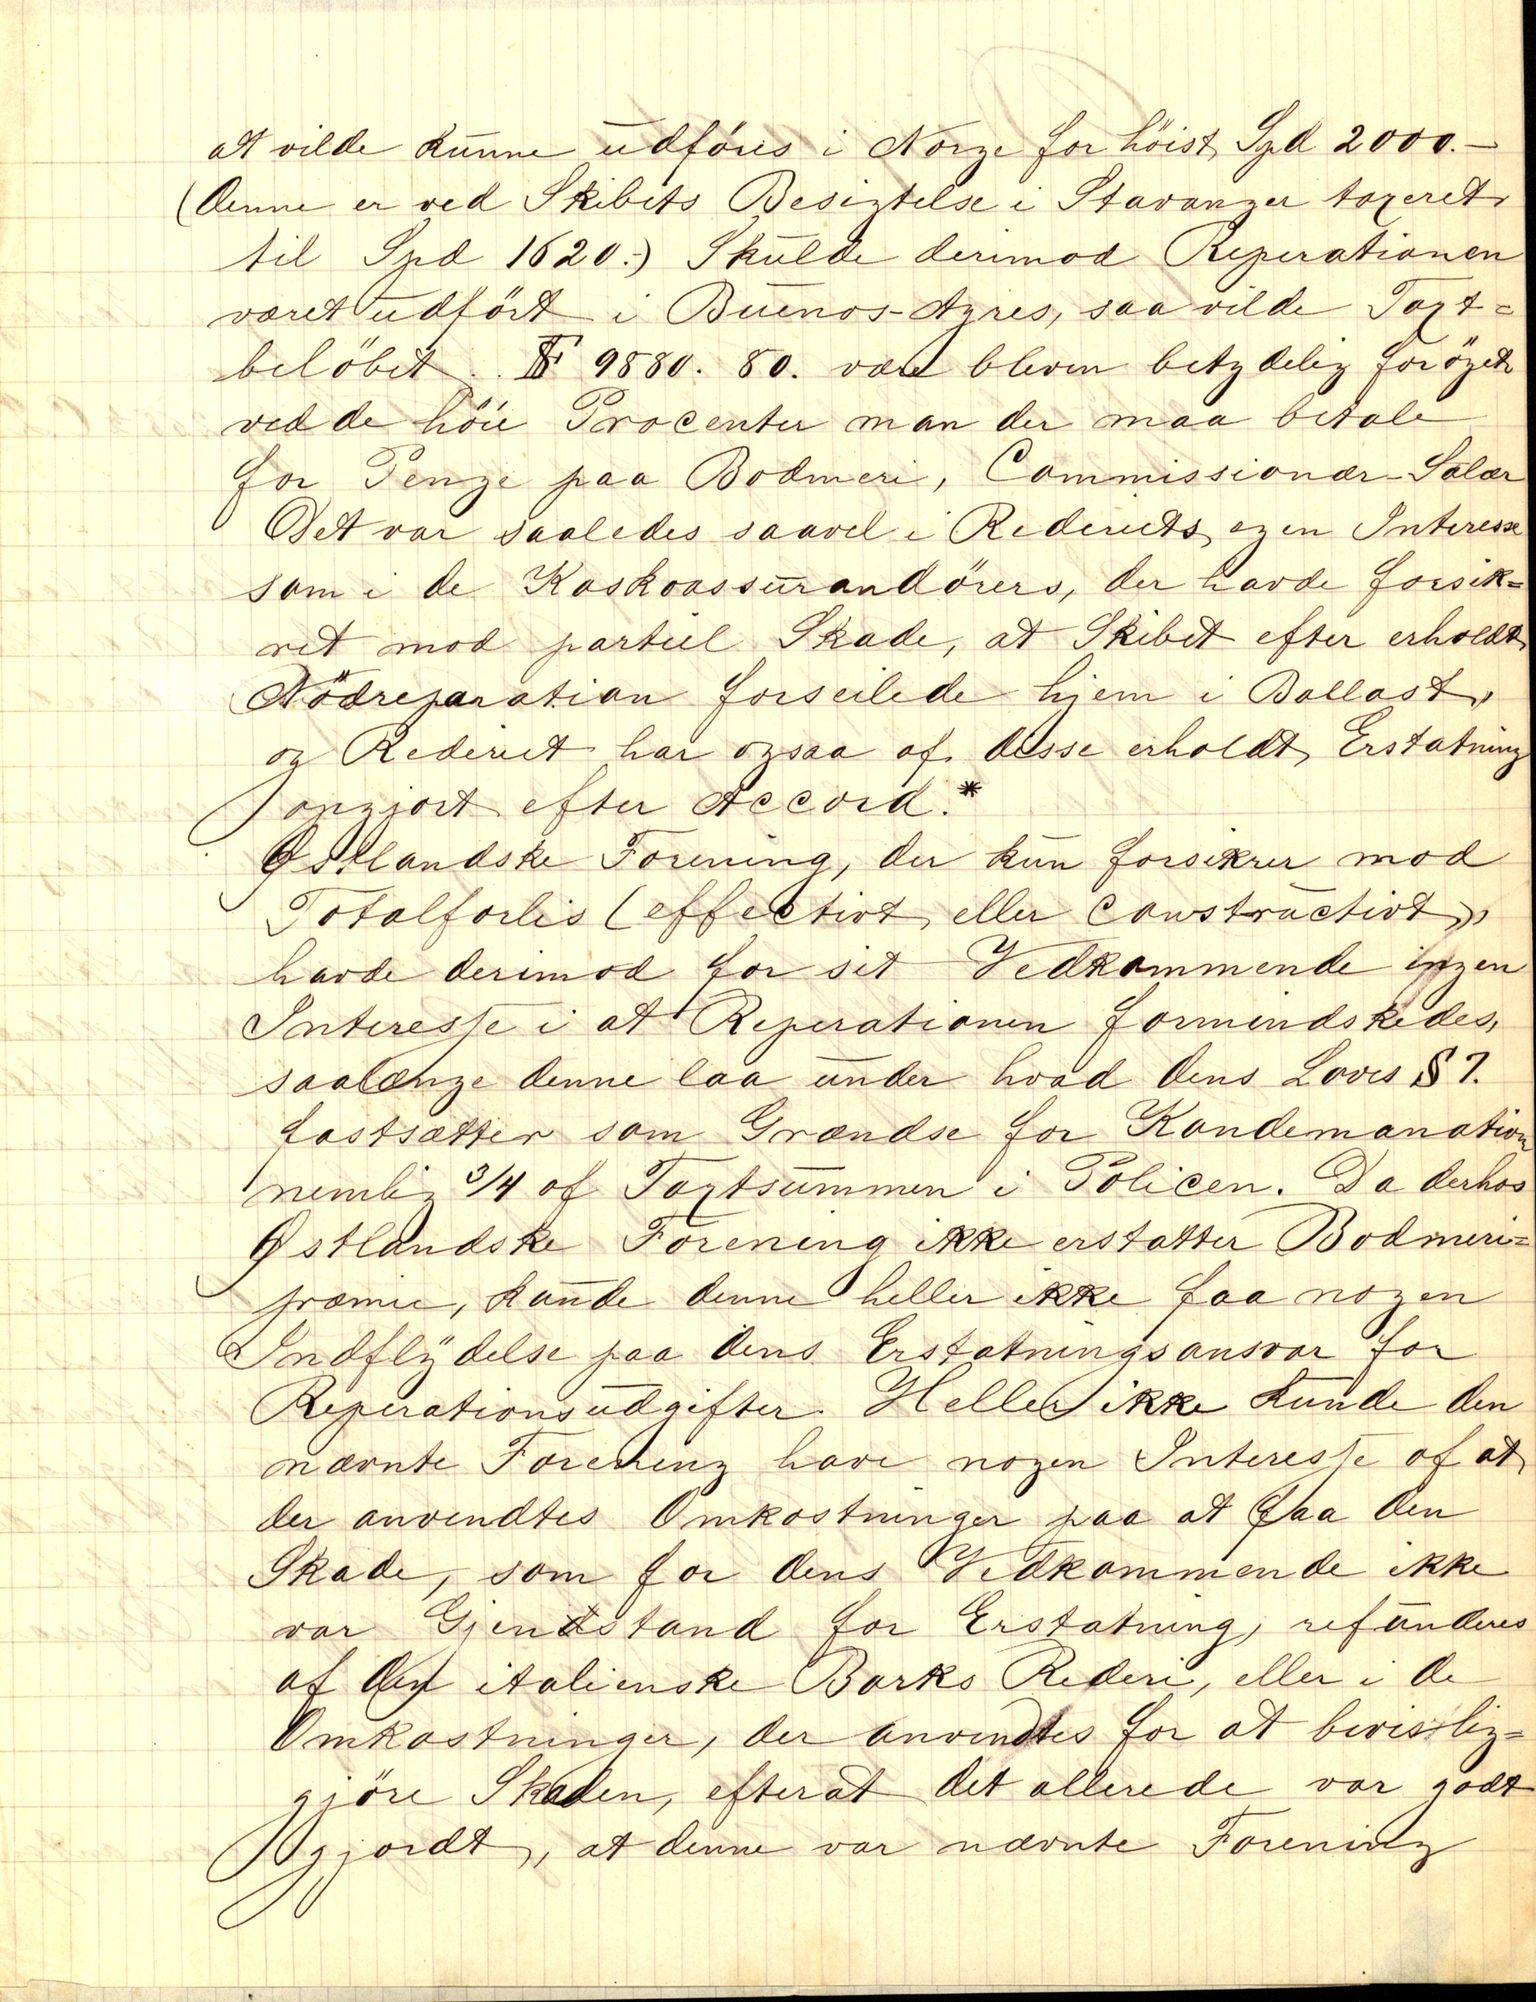 at vilde kunne udföres i Norge for höist Spd 2000.–
(denne er ved Skibets Besigtelse i Stavanger taxeret
til Spd 1620.–) Skulde derimod Reperationen
været udfört i Buenos-Ayres, saa vilde Taxt=
belöbet 9880. 80. være bleven betydelig foröget
ved de höie Procenter man der maa betale
for Penge paa Bodmeri, Commissionær-Salær
Det var saaledes saavel i Rederiets egen Interesse
som i de Kaskoassurandörers, der havde forsik=
ret mod partiel Skade, at Skibet efter erholdt
Nödreparation forseilede hjem i Ballast,
og Rederiet har ogsaa af disse erholdt Erstatning
opgjort efter Accord.*
Østlandske Forening, der kun forsikrer mod
Totalforlis (effectivt eller constructivt),
havde derimod for sit Vedkommende ingen
Interesse i at Reperationen formindskedes,
saalænge denne laa under hvad dens Loves § 7.
fastsætter som Grændse for Kondemanation
nemlig 3/4 af Taxtsummen i Policen. Da derhos
Østlandske Forening ikke erstatter Bodmeri=
præmie, kunde denne heller ikke faa nogen
Indflydelse paa dens Erstatningsansvar for
Reperationsudgifter. Heller ikke kunde den
nævnte Forening have nogen Interesse af at
der anvendtes Omkostninger paa at faa den
Skade, som for dens Vedkommende ikke
var Gjendstand for Erstatning, refunderes
af den italienske Barks Rederi, eller i de
Omkostninger, der anvendtes for at bevislig=
gjöre Skaden, efterat det allerede var godt
gjordt, at denne var nævnte Forening